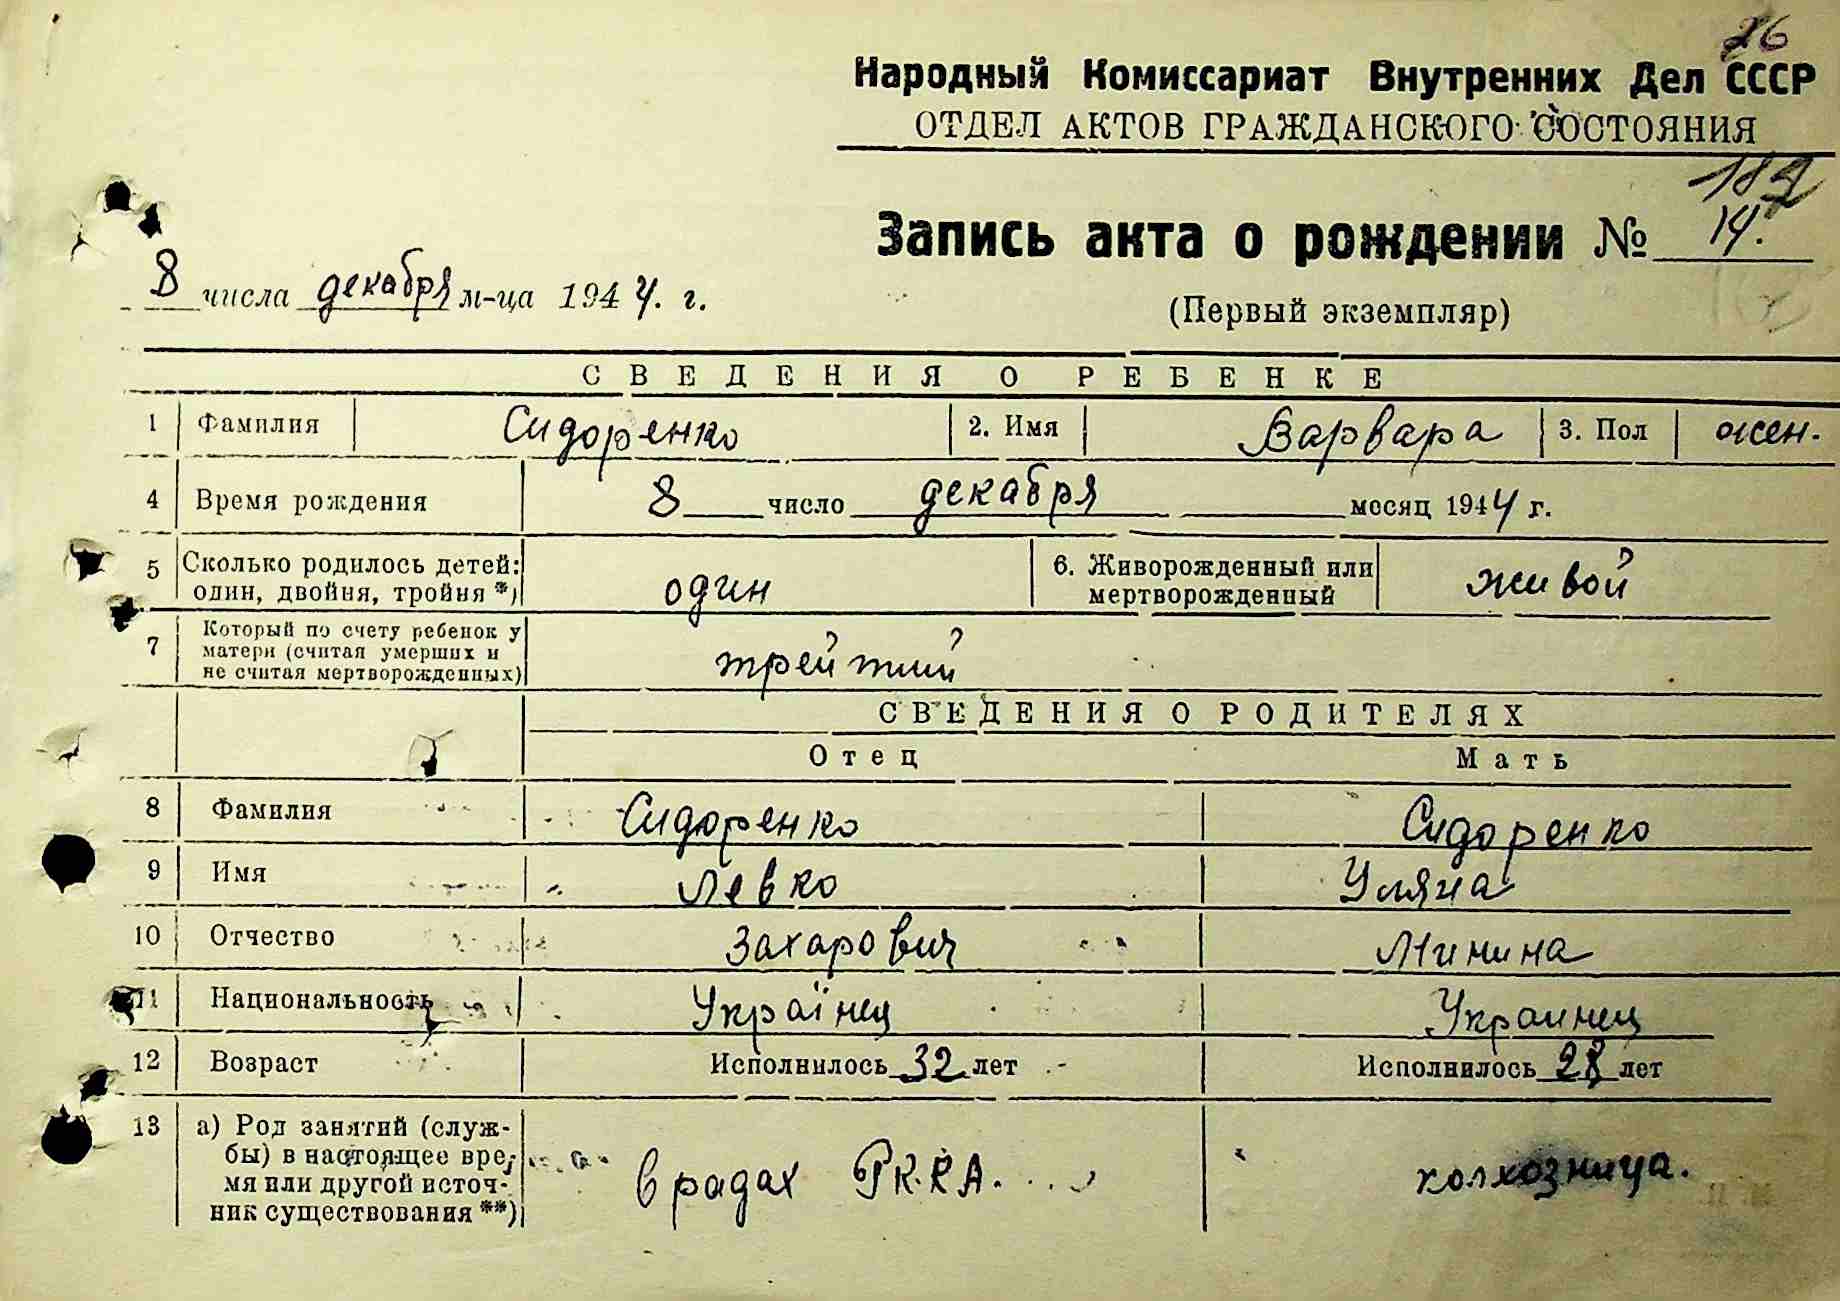 26
Народный Комиссариат Внутренних Дел СССР
ОТДЕЛ АКТОВ ГРАЖДАНСКОГО СОСТОЯНИЯ
Запись акта о рождении № 14.
8 числа декабря м-ца 1944. г.
(Первый экземпляр)
СВЕДЕНИЯ О РЕБЕНКЕ
1 Фамилия Сидоренко 2. Имя Варвара 3. Пол жен.
4 Время рождения 8 число декабря месяц 1944 г.
5 Сколько родилось детей: один, двойня, тройня *) один 6. Живорожденный или мертворожденный живой
7 Который по счету ребенок у матери (считая умерших и не считая мертворожденных) трейтий
СВЕДЕНИЯ О РОДИТЕЛЯХ
Отец Мать
8 Фамилия Сидоренко Сидоренко
9 Имя Левко Уляна
10 Отчество Захарович Минина
11 Национальность Українец Украинец
12 Возраст Исполнилось 32 лет Исполнилось 28 лет
13 а) Род занятий (служ-
бы) в настоящее вре-
мя или другой источ-
ник существования **) в радах РККА. колхозница.